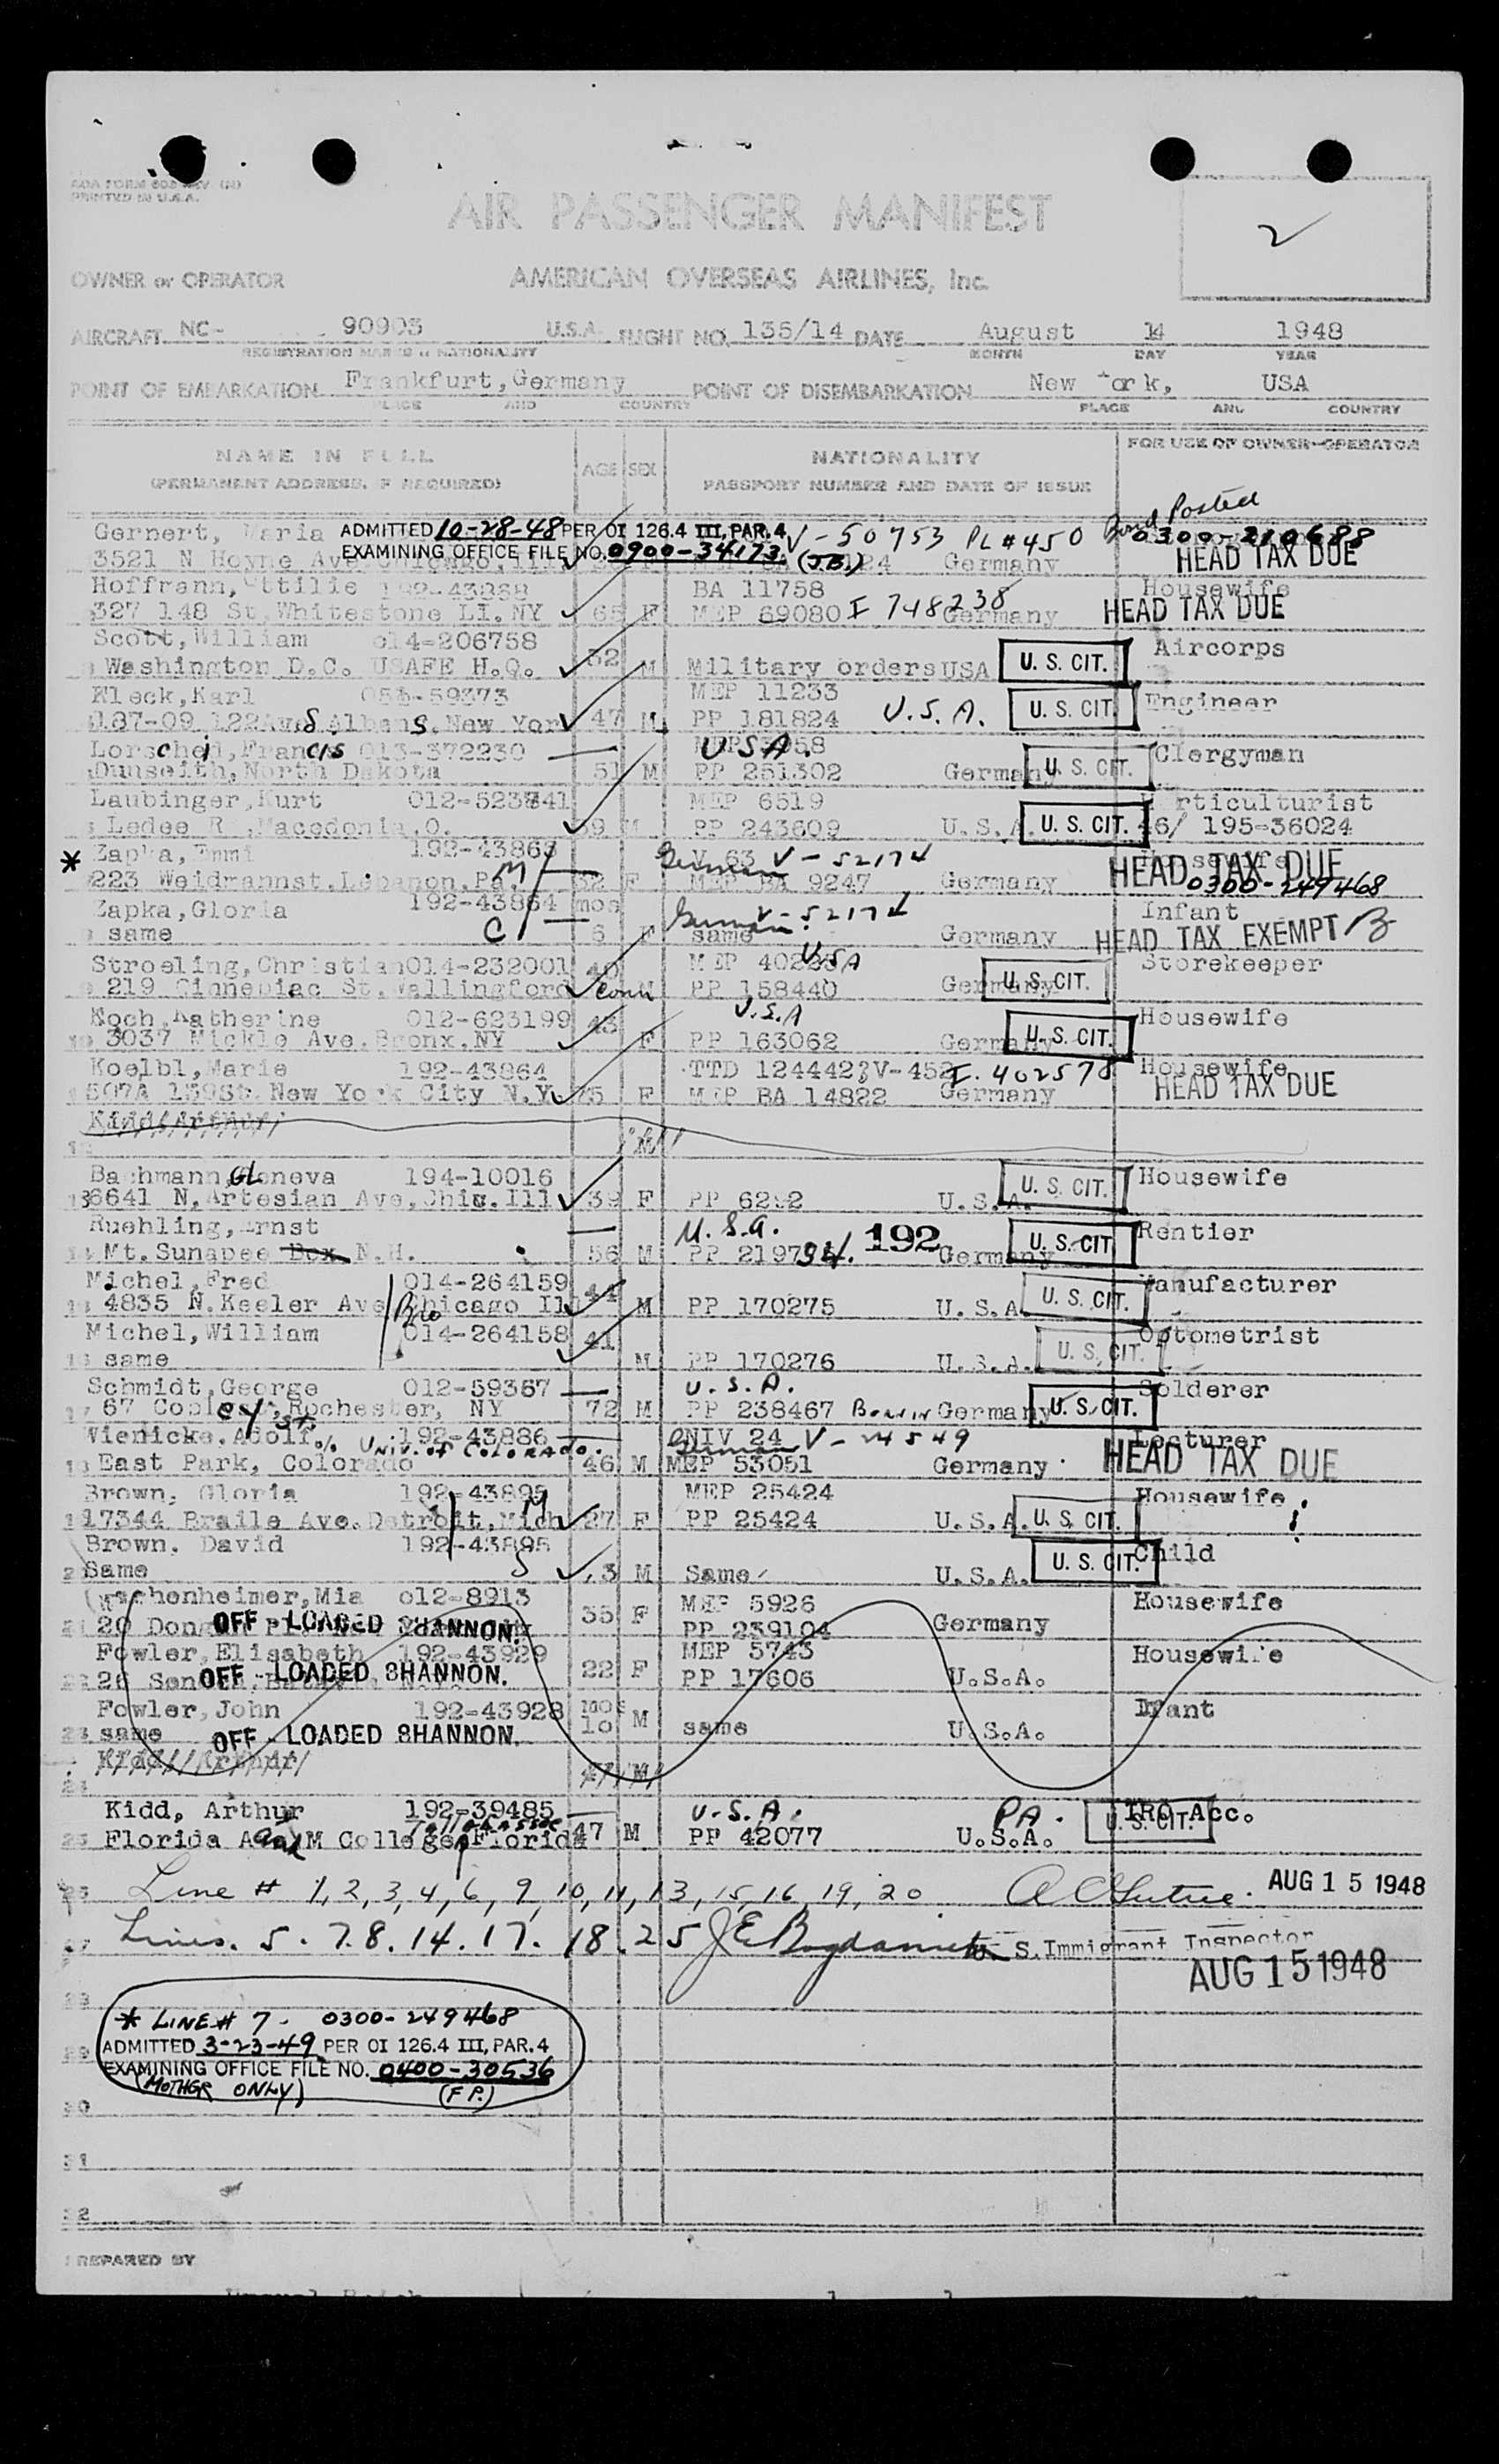 PRINTED IN U.S.A.
AIR PASSENGER MANIFEST
2
OWNER or OPERATOR AMERICAN OVERSEAS AIRLINES, Inc.
AIRCRAFT NC- 90903 U.S.A. FLIGHT NO. 135/14 DATE August 14 1948
REGISTRATION MARKS & NATIONALITY MONTH DAY YEAR
POINT OF EMBARKATION Frankfurt, Germany POINT OF DISEMBARKATION New York, USA
PLACE AND COUNTRY PLACE AND COUNTRY
NAME IN FULL AGE SEX NATIONALITY FOR USE OF OWNER-OPERATOR
(PERMANENT ADDRESS, IF REQUIRED) PASSPORT NUMBER AND DATE OF ISSUE
Bond Posted
Gernert, Maria ADMITTED 10-28-48 PER OI 126.4 III, PAR. 4 V-50753 PL#450 0300-210688
EXAMINING OFFICE FILE NO. 0900-34173 (J.B.) HEAD TAX DUE
3521 N Hoyne Ave. Chicago, Ill Germany
Hoffmann, Ottilie 192-43868 BA 11758 Housewife
327 148 St. Whitestone LI. NY 65 F MEP 69080 I 748238 Germany HEAD TAX DUE
Scott, William 014-206758 Aircorps
Washington D.C. USAFE H.Q. 32 M Military orders USA U. S. CIT.
Kleck, Karl MEP 11233 Engineer
187-09 122Ave S. Albans. New Yor 47 M PP 181824 U.S.A. U. S. CIT.
Lorscheid, Francis 013-372230 USA. Clergyman
Dunseith, North Dakota 51 M PP 251302 Germany U. S. CIT.
Laubinger, Kurt MEP 6519 Horticulturist
Macedonia, O. 39 M PP 243609 U.S.A. U. S. CIT. 46/ 195-36024
* Zapka, Emmi 192-43863 M German V-52174 Housewife HEAD TAX DUE
223 Weidmannst. Lebanon, Pa. 32 F MEP BA 9247 Germany 0300-249468
Zapka, Gloria 192-43864 mos German V-52174 Infant
same C 6 F same Germany HEAD TAX EXEMPT
Stroeling, Christian 014-232001 40 USA Storekeeper
219 St. Wallingford Conn M PP 158440 Germany U. S. CIT.
Koch, Katherine 012-623199 43 U.S.A Housewife
10 3037 Mickle Ave. Bronx, NY F PP 163062 Germany U. S. CIT.
Koelbl, Marie 192-43864 I. 402578 Housewife
507A 139St. New York City N.Y. 75 F MEP BA 14822 Germany HEAD TAX DUE
Kidd, Arthur
12 M
Bachmann, Geneva 194-10016 Housewife
13 6641 N. Artesian Ave. Chic. Ill 39 F PP 6292 U.S.A. U. S. CIT.
Ruehling, Ernst U.S.A. 192 Rentier
14 Mt. Sunapee Box N.H. 56 M PP 219794. Germany U. S. CIT
Michel, Fred 014-264159 44 Manufacturer
4835 N. Keeler Ave Bro Chicago Il M PP 170275 U.S.A. U. S. CIT.
Michel, William 014-264158 41 Optometrist
16 same M PP 170276 U.S.A. U. S. CIT.
Schmidt, George 012-59367 U.S.A. Solderer
17 67 Copley St., Rochester, NY 72 M PP 238467 Germany U. S. CIT.
Wienicke, Adolf % UNIV. of COLORADO. 192-43886 UNIV 24 German V-24549 Lecturer
18 East Park, Colorado 46 M MEP 53051 Germany HEAD TAX DUE
Brown, Gloria 192-43895 M MEP 25424 Housewife
17344 Braile Ave. Detroit, Mich 27 F PP 25424 U.S.A. U. S. CIT.
Brown, David 192-43895 Child
Same S 3 M Same U.S.A. U. S. CIT.
Wachenheimer, Mia 012-8913 MEP 5926 Housewife
OFF-LOADED SHANNON. 35 F PP 239104 Germany
Fowler, Elisabeth 192-43929 MEP 5743 Housewife
OFF-LOADED SHANNON. 22 F PP 17606 U.S.A.
Fowler, John 192-43928 mos Infant
23 same OFF-LOADED SHANNON. 10 M same U.S.A.
Kidd, Arthur 47 M
24
Kidd, Arthur 192-39485 U.S.A. PA. IRO Acc.
25 Florida A and M College, Tallahassee Florida 47 M PP 42077 U.S.A. U. S. CIT.
26 Line # 1, 2, 3, 4, 6, 9, 10, 11, 13, 15, 16, 19, 20 AUG 15 1948
27 Lines. 5. 7. 8. 14. 17. 18. 25 U. S. Immigrant Inspector
AUG 15 1948
28
* LINE # 7- 0300-249468
29 ADMITTED 3-23-49 PER OI 126.4 III, PAR. 4
EXAMINING OFFICE FILE NO. 0400-30536
(MOTHER ONLY) (F.P.)
30
31
32
PREPARED BY